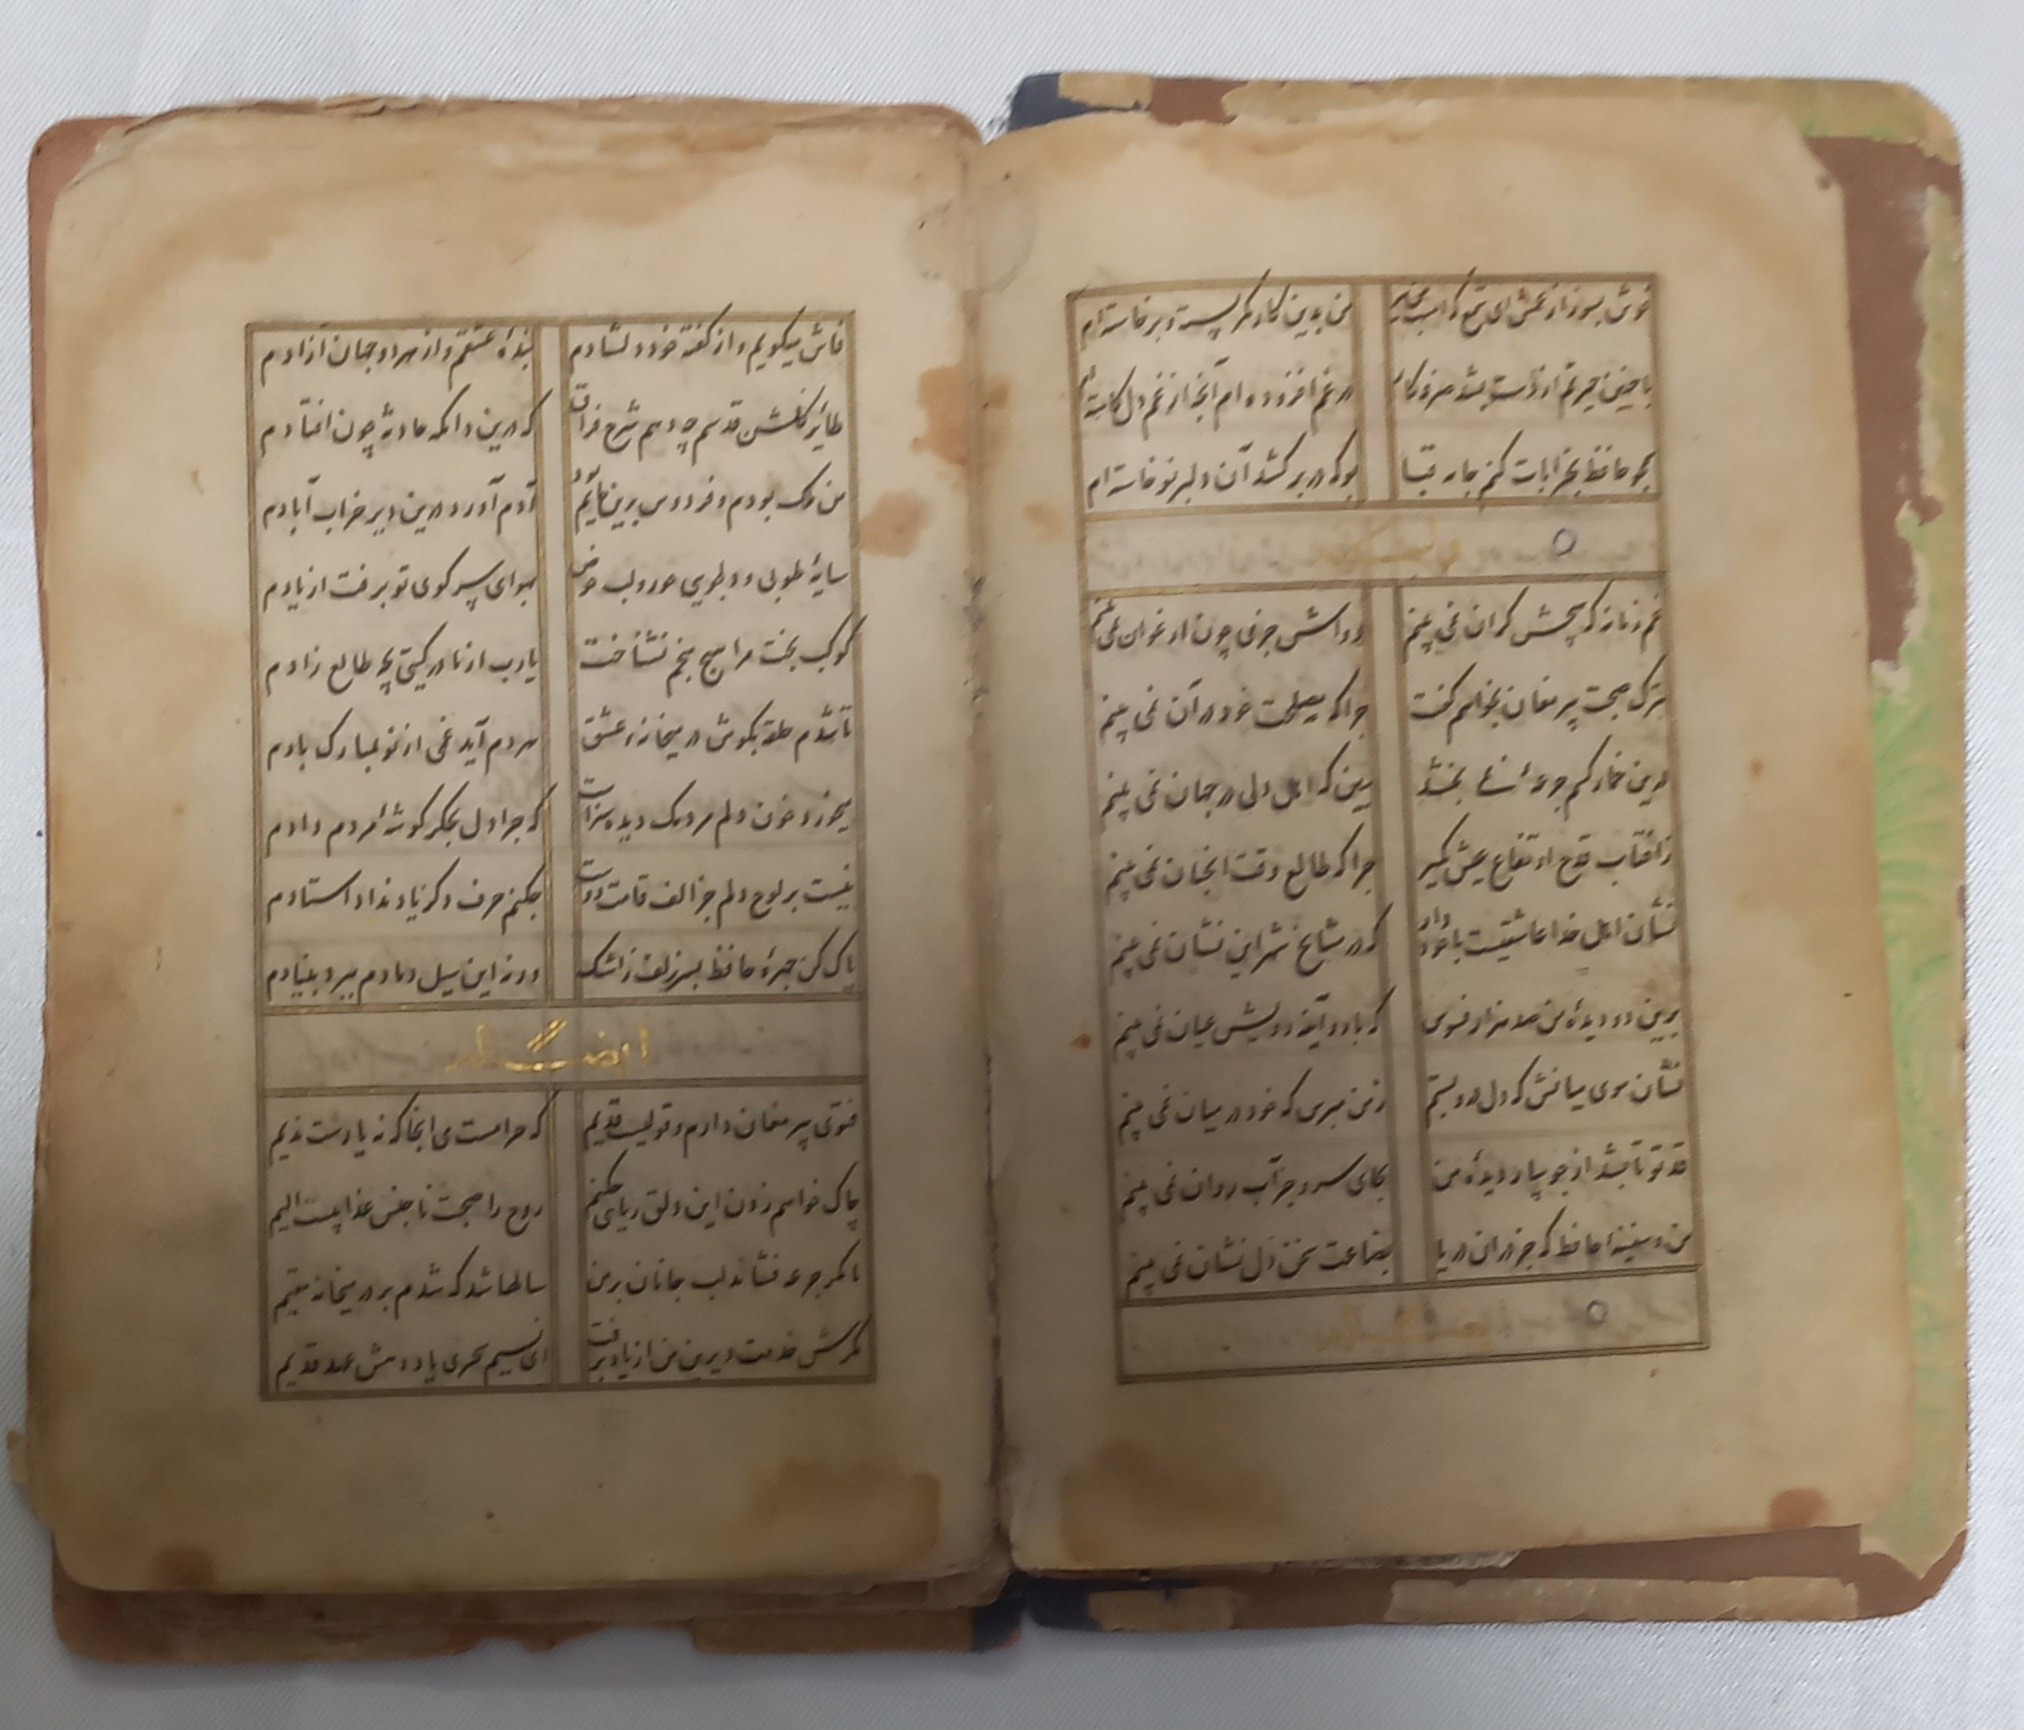 خوش بسوز از غمش ای شمع که امشب
من بدین کار کمر بسته و برخاسته ام
با چنین حیرتم از دست بشد صرفه کار
در غم افزوده ام آنچ از غم دل کاسته ام
همچو حافظ بخرابات کنم جامه قبا
بو که در بر کشد آن دلبر نوخاسته ام
غم زمانه که هیچش کران نمی بینم
دواش جز می چون ارغوان نمی بینم
بترک صحبت پیر مغان نخواهم گفت
چرا که مصلحت خود در آن نمی بینم
درین خمار کسم جرعهٔ نمی بخشد
ببین که اهل دلی در جهان نمی بینم
ز آفتاب قدح ارتفاع عیش بگیر
چرا که طالع وقت آنچنان نمی بینم
نشان اهل خدا عاشقیست با خود دار
که در مشایخ شهر این نشان نمی بینم
برین دو دیدهٔ من صد هزار افسوس
که با دو آینه رویش عیان نمی بینم
نشان موی میانش که دل درو بستم
ز من مپرس که خود در میان نمی بینم
قد تو تا بشد از جویبار دیدهٔ من
بجای سرو جز آب روان نمی بینم
من و سفینهٔ حافظ که جز در آن دریا
بضاعت سخن دل نشان نمی بینم
فاش میگویم و از گفته خود دلشادم
بندهٔ عشقم و از هر دو جهان آزادم
طایر گلشن قدسم چه دهم شرح فراق
که درین دامگه حادثه چون افتادم
من ملک بودم و فردوس برین جایم بود
آدم آورد درین دیر خراب آبادم
سایهٔ طوبی و دلجویی حور و لب حوض
بهوای سر کوی تو برفت از یادم
کوکب بخت مرا هیچ منجم نشناخت
یارب از مادر گیتی بچه طالع زادم
تا شدم حلقه بگوش در میخانهٔ عشق
هر دم آید غمی از نو بمبارک بادم
میخورد خون دلم مردمک دیده سزاست
که چرا دل بجگر گوشهٔ مردم دادم
نیست بر لوح دلم جز الف قامت دوست
چکنم حرف دگر یاد نداد استادم
پاک کن چهرهٔ حافظ بسر زلف ز اشک
ورنه این سیل دمادم ببرد بنیادم
ایضاً له
فتوی پیر مغان دارم و قولیست قدیم
که حرامست می آنجا که نه یارست ندیم
چاک خواهم زدن این دلق ریایی چکنم
روح را صحبت ناجنس عذابیست الیم
تا مگر جرعه فشاند لب جانان بر من
سالها شد که شدم بر در میخانه مقیم
مگرش خدمت دیرین من از یاد برفت
ای نسیم سحری یاد دهش عهد قدیم